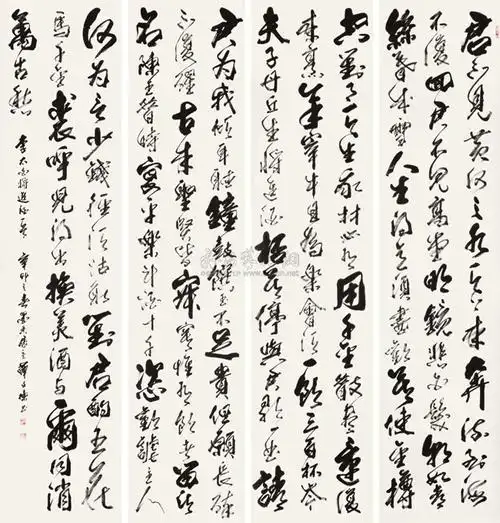 君不見黃河之水天上來奔流到海
不復回君不見高堂明鏡悲白髮朝如青
絲暮成雪人生得意須盡歡莫使金樽
空對月天生我材必有用千金散盡還復
來烹羊宰牛且為樂會須一飲三百杯岑
夫子丹丘生將進酒杯莫停與君歌一曲請
君為我傾耳聽鐘鼓饌玉不足貴但願長醉
不復醒古來聖賢皆寂寞惟有飲者留其
名陳王昔時宴平樂斗酒十千恣歡謔主人
何為言少錢徑須沽取對君酌五花
馬千金裘呼兒將出換美酒與爾同消
萬古愁
李太白將進酒一首